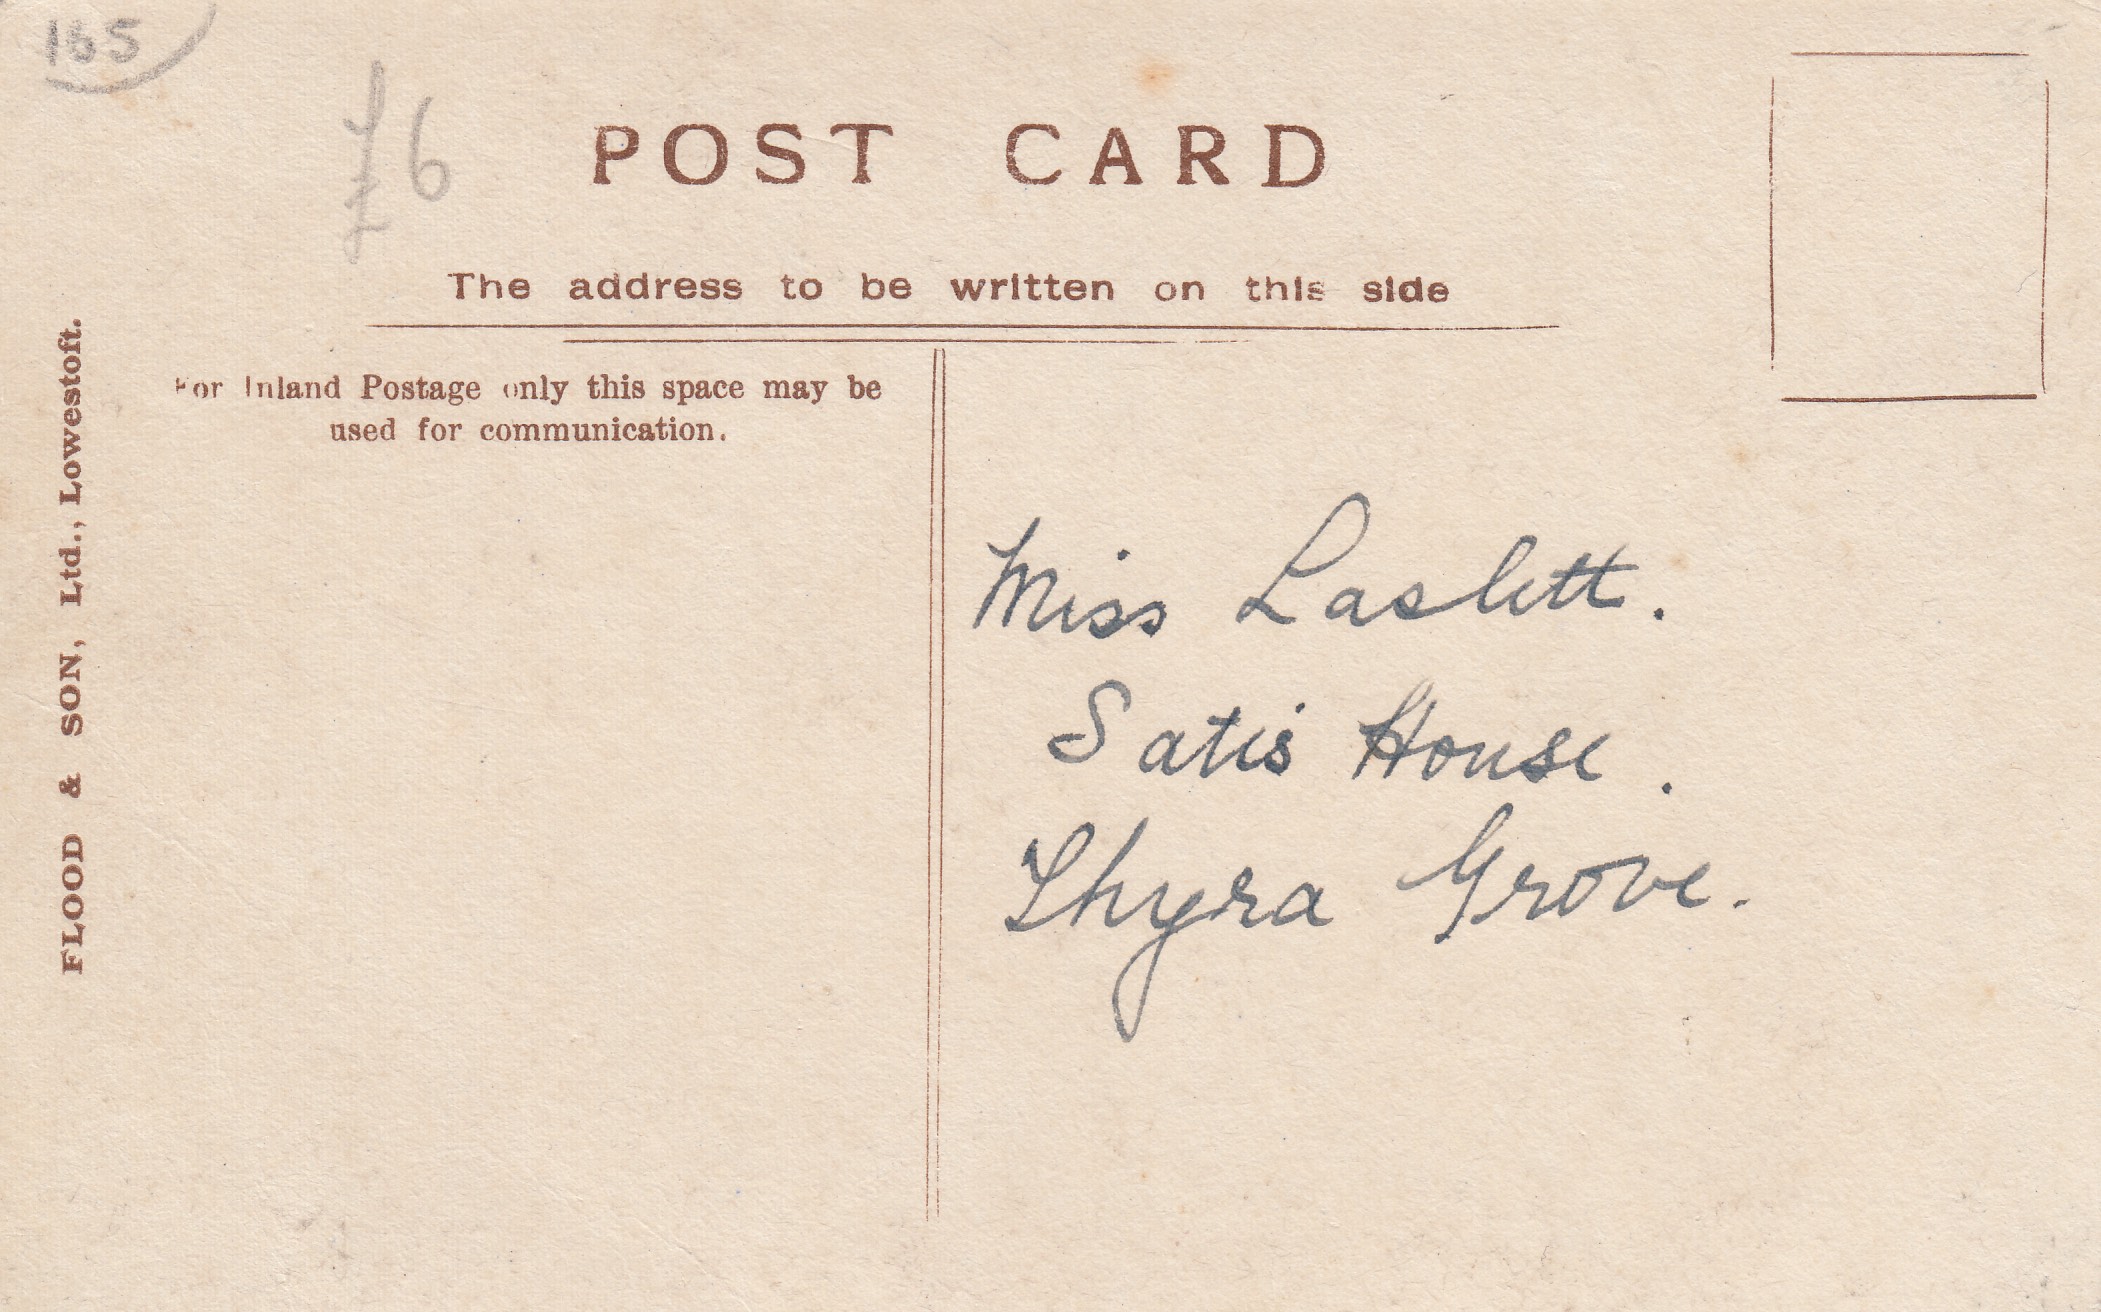 165
£6
POST CARD
The address to be written on this side
For Inland Postage only this space may be
used for communication.
FLOOD & SON, Ltd., Lowestoft.
Miss Laslett.
Satis House.
Thyra Grove.